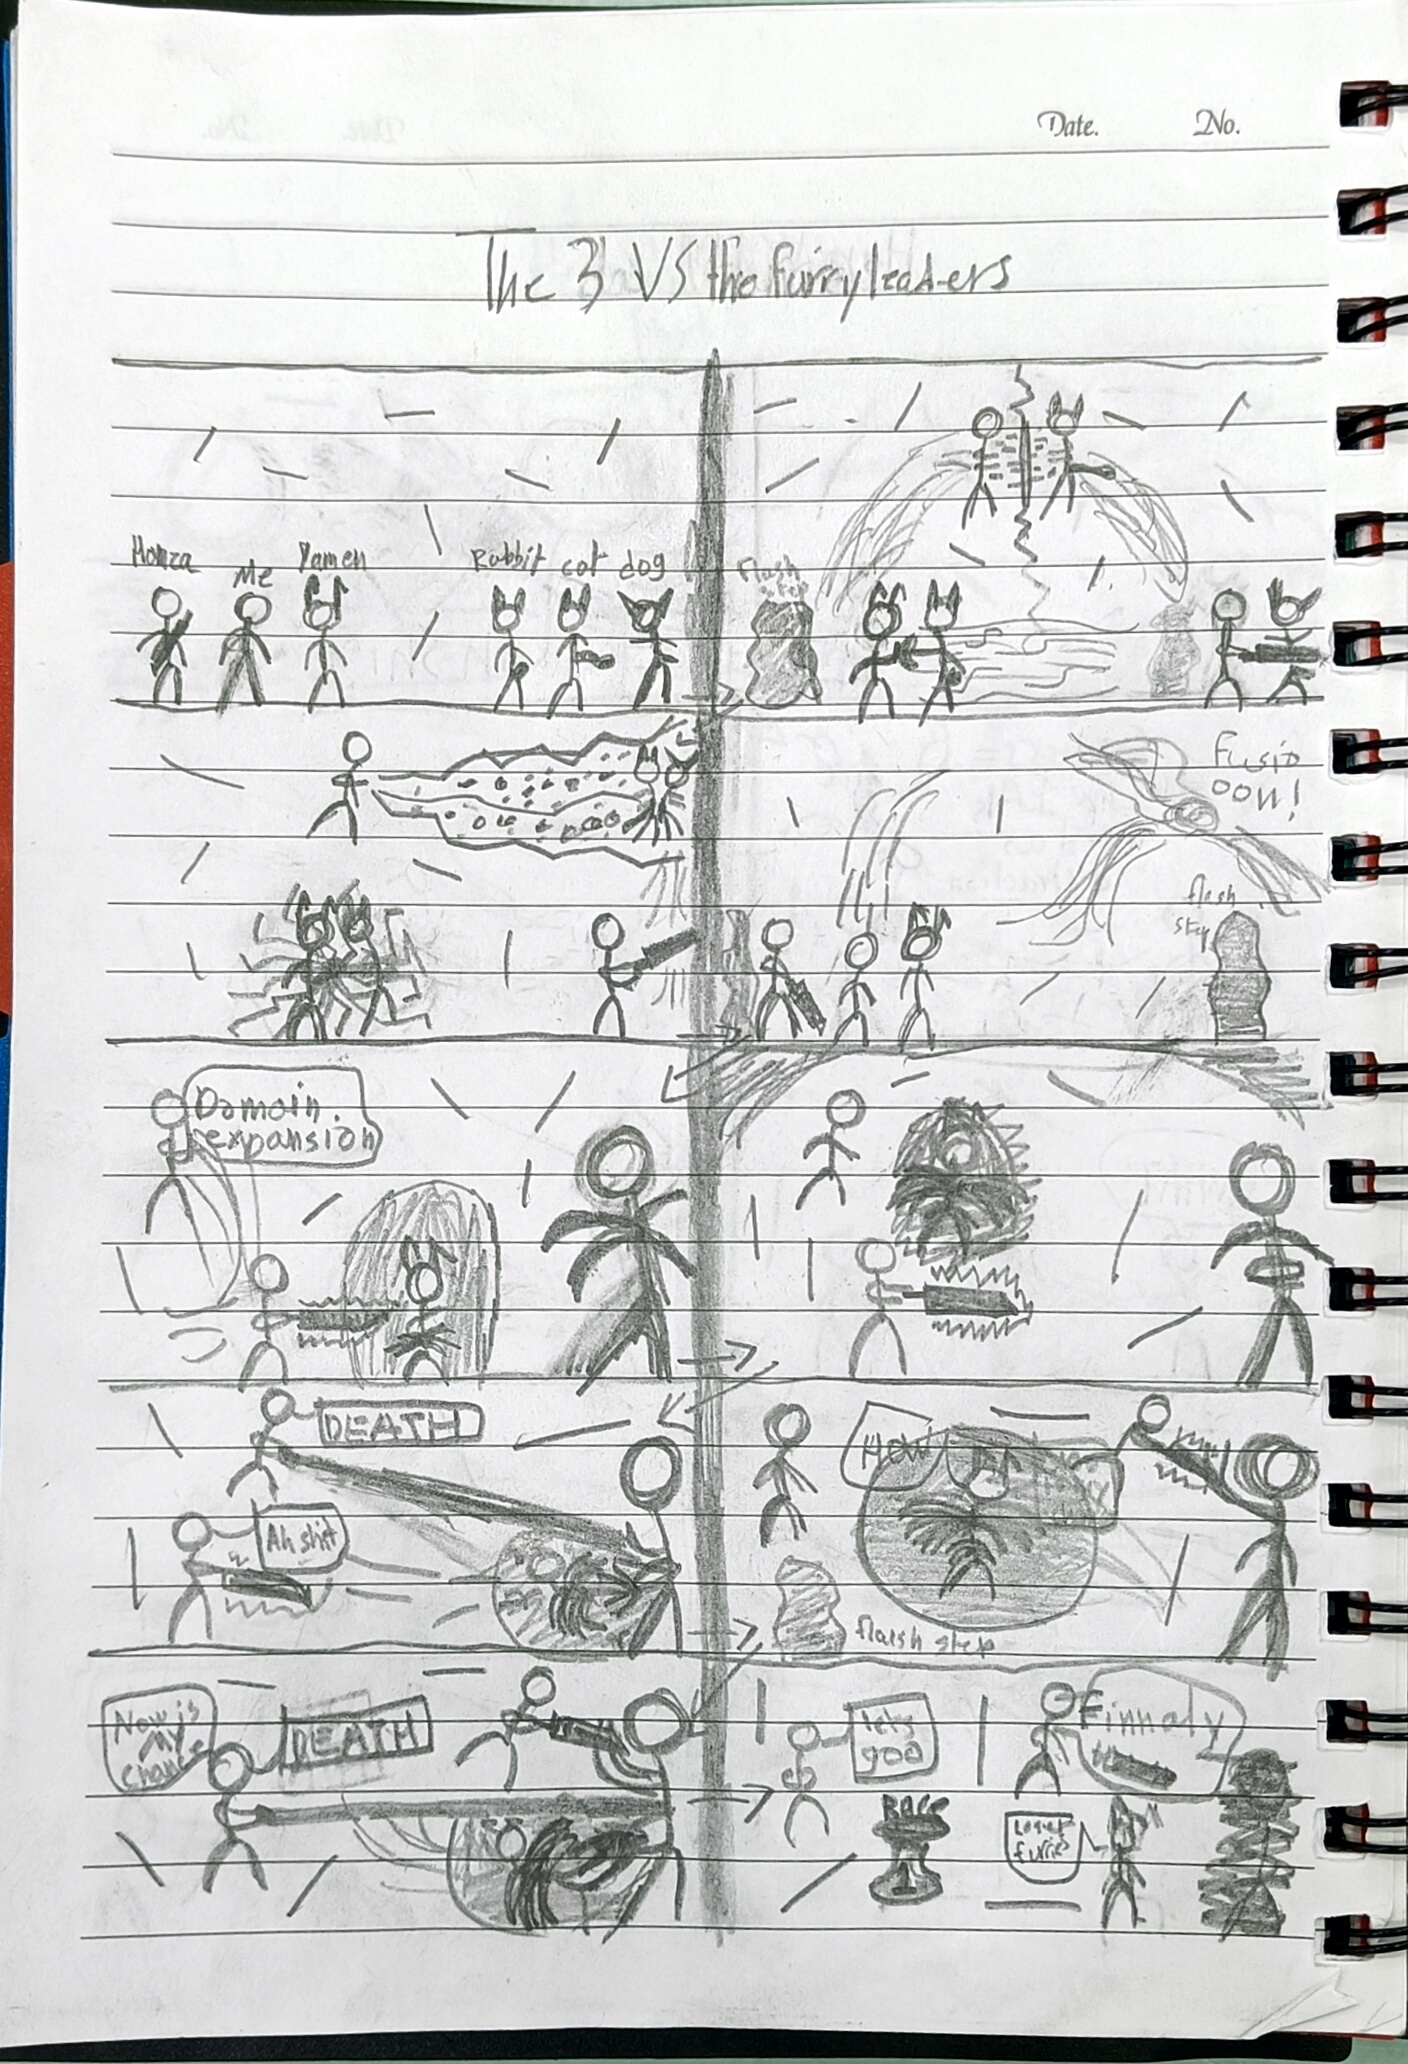 Date. No.
The 3 VS the furryleaders
Hamza Me Yamen Rabbit cat dog
flash
Fusio
oon!
flash
step
Domain
expansion
DEATH
Ah shit
How
flaish step
Now is
my
chance
DEATH
lets
goo
Finnaly
furries